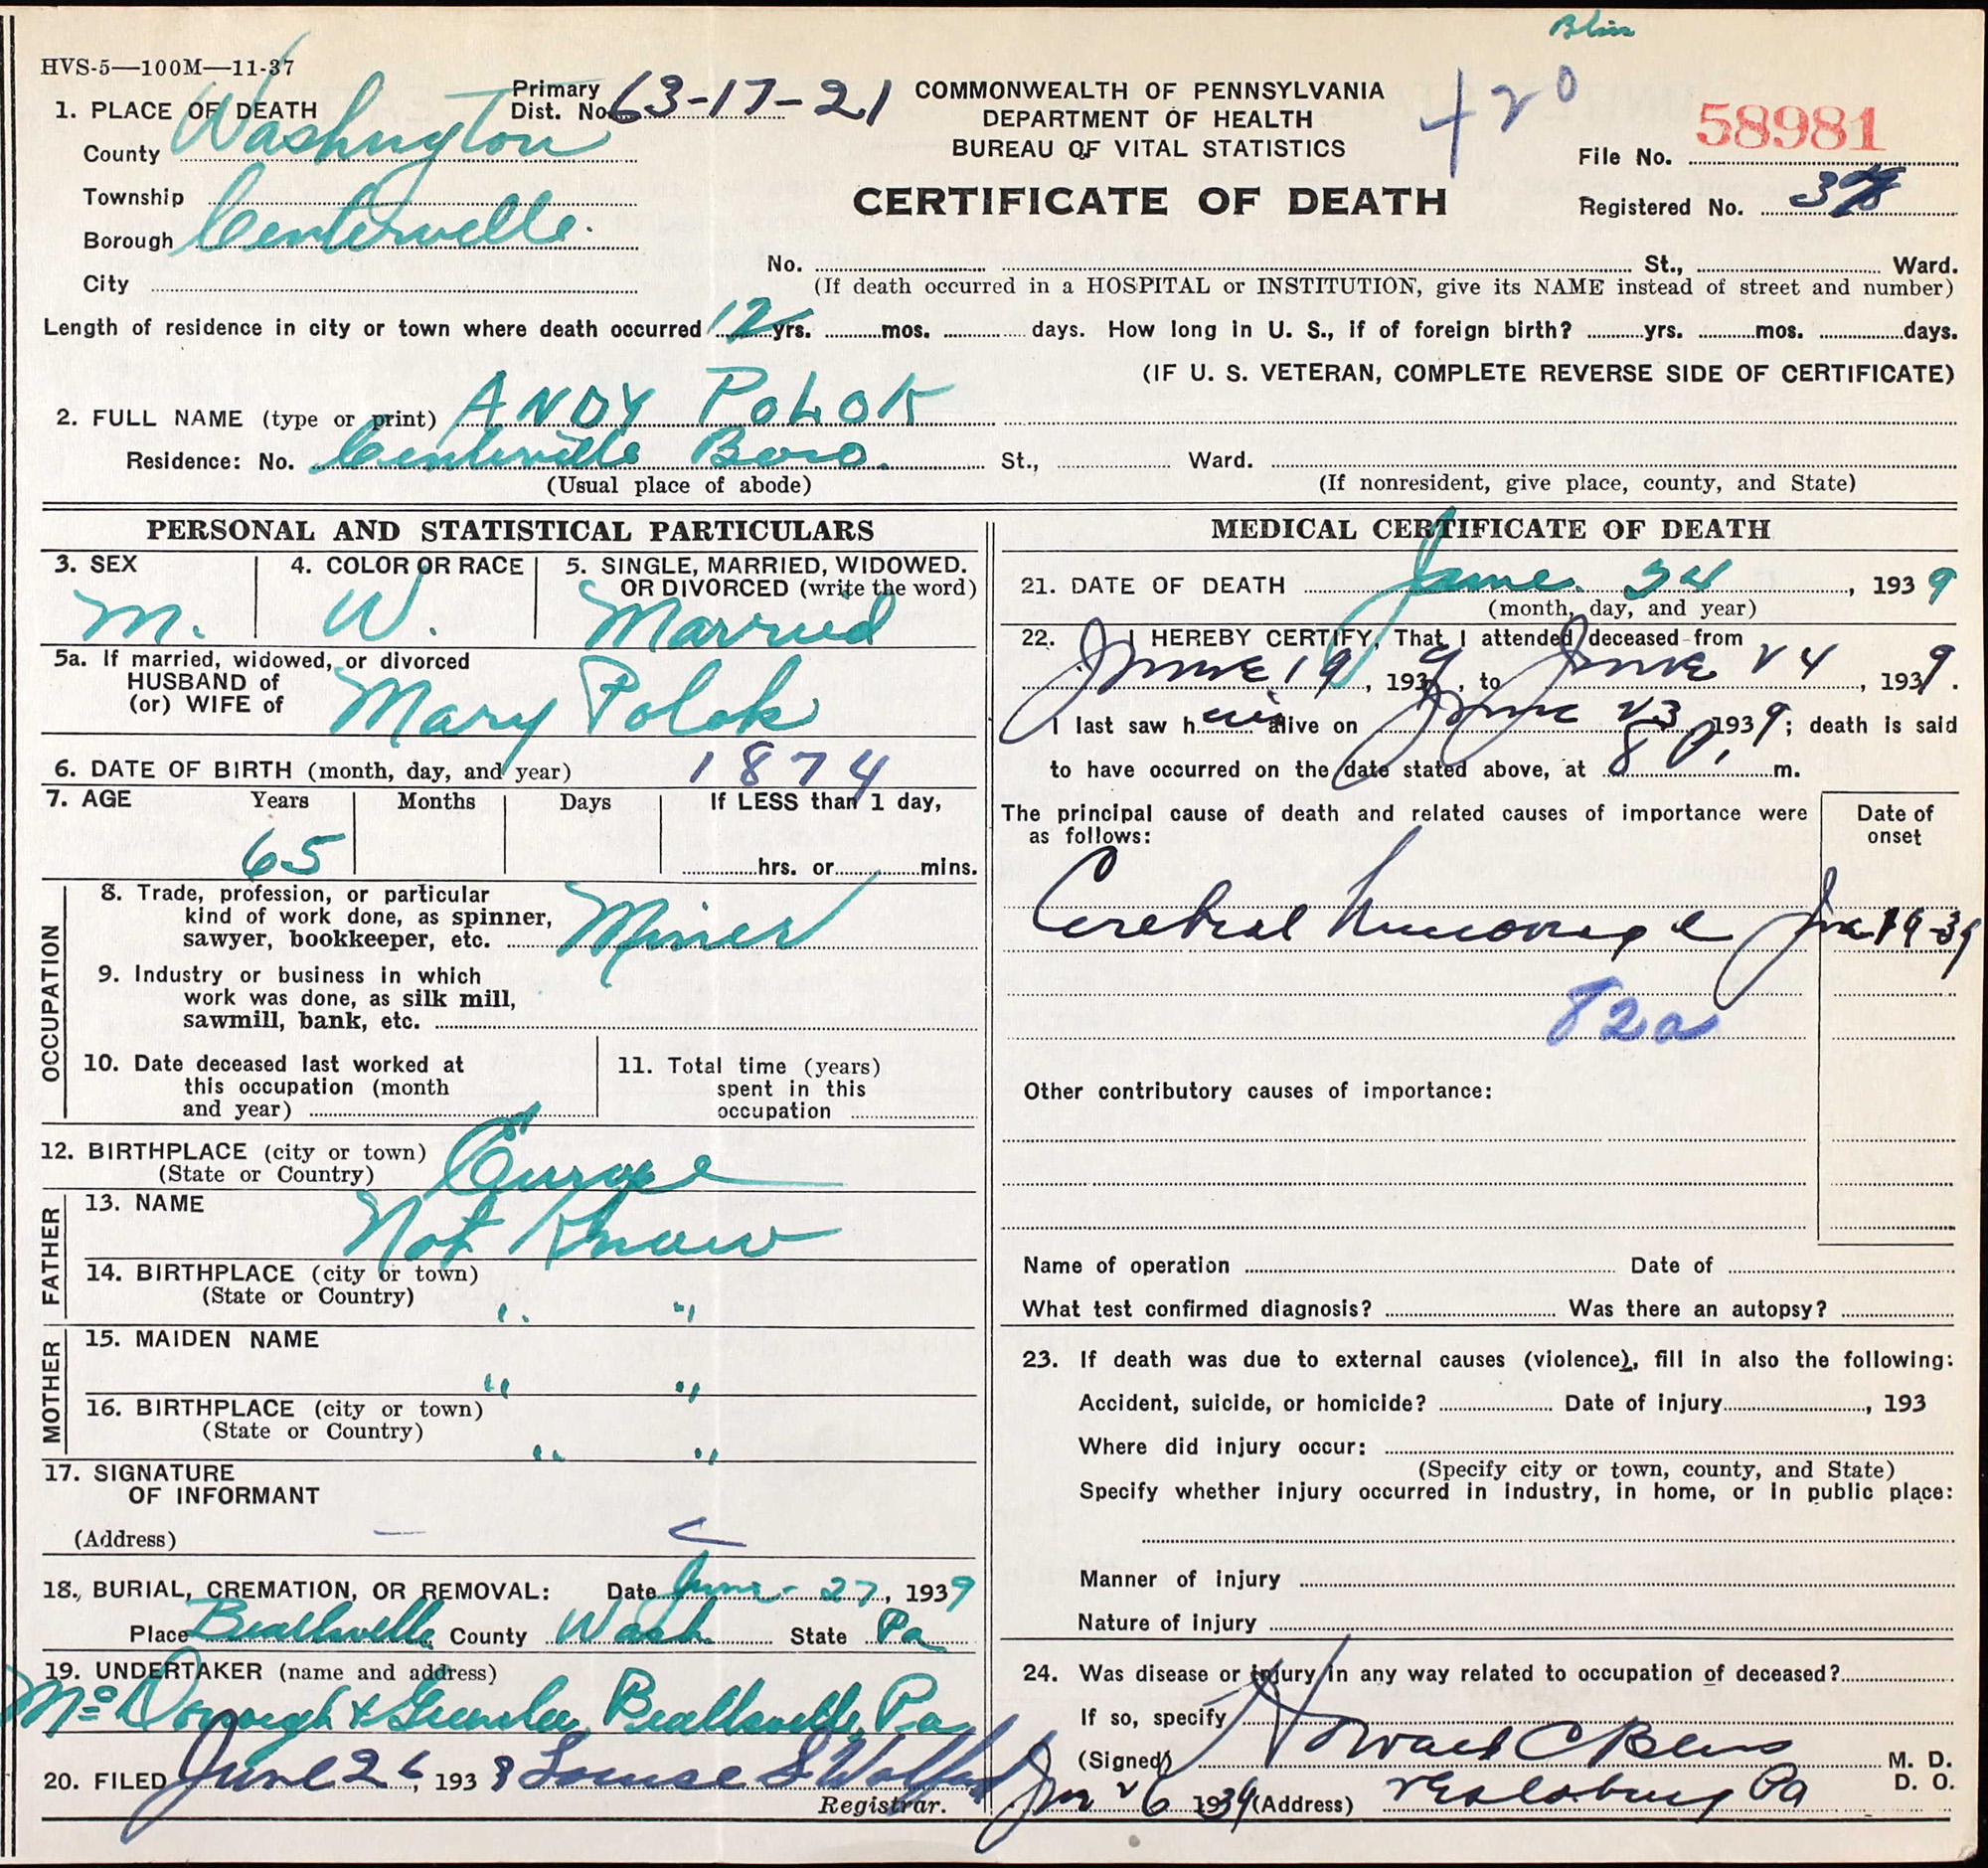 Bliss
HVS-5—100M—11-37
Primary Dist. No. 63-17-21
COMMONWEALTH OF PENNSYLVANIA
DEPARTMENT OF HEALTH
BUREAU OF VITAL STATISTICS
420
File No. 58981
Registered No. 37
CERTIFICATE OF DEATH
1. PLACE OF DEATH
County Washington
Township
Borough Centerville.
City
No. St., Ward.
(If death occurred in a HOSPITAL or INSTITUTION, give its NAME instead of street and number)
Length of residence in city or town where death occurred 12 yrs. mos. days. How long in U. S., if of foreign birth? yrs. mos. days.
(IF U. S. VETERAN, COMPLETE REVERSE SIDE OF CERTIFICATE)
2. FULL NAME (type or print) ANDY POLOK
Residence: No. Centerville Boro. St., Ward.
(Usual place of abode) (If nonresident, give place, county, and State)
PERSONAL AND STATISTICAL PARTICULARS
3. SEX M.
4. COLOR OR RACE W.
5. SINGLE, MARRIED, WIDOWED. OR DIVORCED (write the word) Married
5a. If married, widowed, or divorced
HUSBAND of
(or) WIFE of Mary Polok
6. DATE OF BIRTH (month, day, and year) 1874
7. AGE Years Months Days If LESS than 1 day,
65 hrs. or mins.
OCCUPATION
8. Trade, profession, or particular
kind of work done, as spinner,
sawyer, bookkeeper, etc. Miner
9. Industry or business in which
work was done, as silk mill,
sawmill, bank, etc.
10. Date deceased last worked at
this occupation (month
and year)
11. Total time (years)
spent in this
occupation
12. BIRTHPLACE (city or town)
(State or Country) Europe
FATHER
13. NAME Not Know
14. BIRTHPLACE (city or town)
(State or Country) " "
MOTHER
15. MAIDEN NAME
" "
16. BIRTHPLACE (city or town)
(State or Country)
" "
17. SIGNATURE
OF INFORMANT
(Address)
18. BURIAL, CREMATION, OR REMOVAL: Date June - 27, 1939
Place Beallsville County Wash State Pa
19. UNDERTAKER (name and address)
Beallsville, Pa
20. FILED June 26, 193 Louise S Wolford
Registrar.
MEDICAL CERTIFICATE OF DEATH
21. DATE OF DEATH June. 24, 1939
(month, day, and year)
22. I HEREBY CERTIFY, That I attended deceased from
June 19, 1939, to June 24, 1939.
I last saw him alive on June 23, 1939; death is said
to have occurred on the date stated above, at 8 P. m.
The principal cause of death and related causes of importance were
as follows:
Date of
onset
Cerebral hemorrage June 19-39
82a
Other contributory causes of importance:
Name of operation Date of
What test confirmed diagnosis? Was there an autopsy?
23. If death was due to external causes (violence), fill in also the following:
Accident, suicide, or homicide? Date of injury, 193
Where did injury occur:
(Specify city or town, county, and State)
Specify whether injury occurred in industry, in home, or in public place:
Manner of injury
Nature of injury
24. Was disease or injury in any way related to occupation of deceased?
If so, specify
(Signed) Howard C M. D.
D. O.
June 26 1939 (Address) Pa